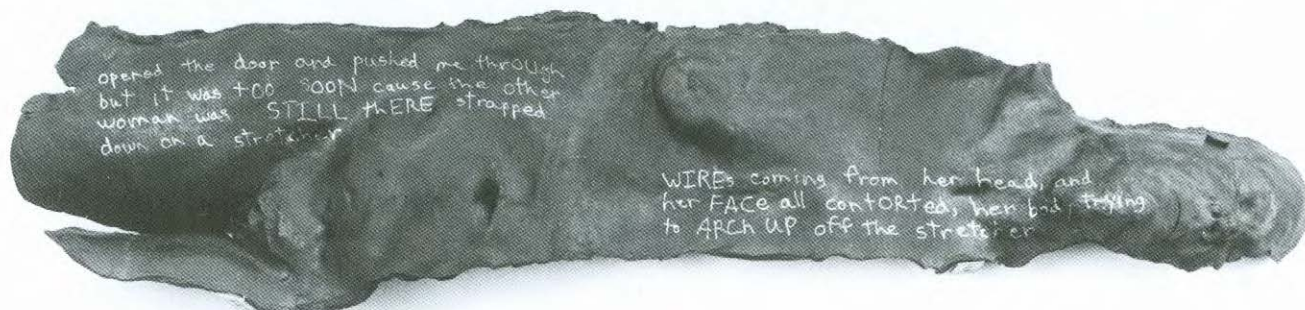 opened the door and pushed me thrOUgh
but it was tOO SOON cause the other
woman was STILL thERE strapped
down on a stretcher
WIREs coming from her head, and
her FACe all contORted, her body trying
to ARCh UP off the stretcher